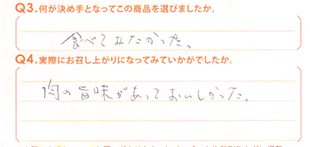 Q3.何が決め手となってこの商品を選びましたか。
食べてみたかった。
Q4.実際にお召し上がりになってみていかがでしたか。
肉の旨味があっておいしかった。